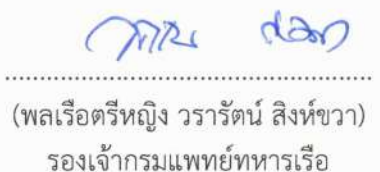 (พลเรือตรีหญิง วรารัตน์ สิงห์ขวา)
รองเจ้ากรมแพทย์ทหารเรือ